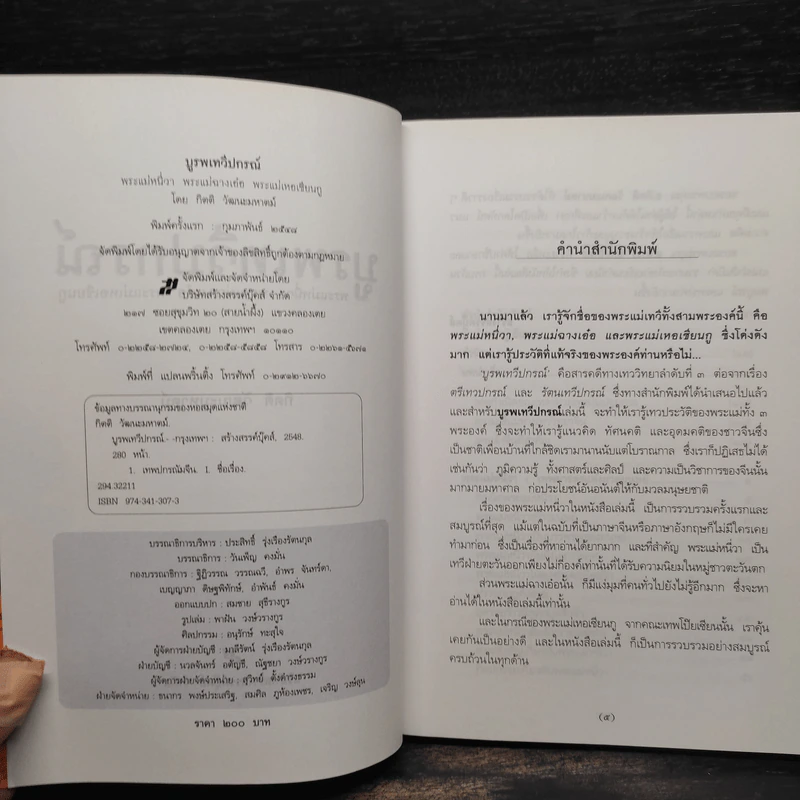 บูรพเทวีปกรณ์
พระแม่หนี่วา พระแม่ฉางเอ๋อ พระแม่เหอเซียนกู
โดย กิตติ วัฒนะมหาตม์
พิมพ์ครั้งแรก : กุมภาพันธ์ ๒๕๔๘
จัดพิมพ์โดยได้รับอนุญาตจากเจ้าของลิขสิทธิ์ถูกต้องตามกฎหมาย
จัดพิมพ์และจัดจำหน่ายโดย
บริษัทสร้างสรรค์บุ๊คส์ จำกัด
๒๑๗ ซอยสุขุมวิท ๒๐ (สายน้ำผึ้ง) แขวงคลองเตย
เขตคลองเตย กรุงเทพฯ ๑๐๑๑๐
โทรศัพท์ ๐-๒๒๕๘-๒๗๒๔, ๐-๒๒๕๘-๕๘๕๘ โทรสาร ๐-๒๒๖๑-๕๖๗๑
พิมพ์ที่ แปลนพริ้นติ้ง โทรศัพท์ ๐-๒๙๑๒-๖๖๗๐
ข้อมูลทางบรรณานุกรมของหอสมุดแห่งชาติ
กิตติ วัฒนะมหาตม์.
บูรพเทวีปกรณ์.- -กรุงเทพฯ : สร้างสรรค์บุ๊คส์, 2548.
280 หน้า.
1. เทพปกรณัมจีน. I. ชื่อเรื่อง.
294.32211
ISBN 974-341-307-3
บรรณาธิการบริหาร : ประสิทธิ์ รุ่งเรืองรัตนกุล
บรรณาธิการ : วันเพ็ญ คงมั่น
กองบรรณาธิการ : ฐิฏิวรรณ วรรณฉวี, อำพร จันทร์ดา,
เบญญาภา ดิษฐพิทักษ์, อำพันธ์ คงมั่น
ออกแบบปก : สมชาย สุธีรางกูร
รูปเล่ม : พาฝัน วงษ์วรางกูร
ศิลปกรรม : อนุรักษ์ ทะสุใจ
ผู้จัดการฝ่ายบัญชี : มาลีรัตน์ รุ่งเรืองรัตนกุล
ฝ่ายบัญชี : นวลจันทร์ อตัญถี, ณัฐชยา วงษ์วรางกูร
ผู้จัดการฝ่ายจัดจำหน่าย : สุวิทย์ ตั้งดำรงธรรม
ฝ่ายจัดจำหน่าย : ธนากร พงษ์ประเสริฐ, สมศิล ภูท้องเพชร, เจริญ วงษ์สุน
ราคา ๒๐๐ บาท
คำนำสำนักพิมพ์
นานมาแล้ว เรารู้จักชื่อของพระแม่เทวีทั้งสามพระองค์นี้ คือ
พระแม่หนี่วา, พระแม่ฉางเอ๋อ และพระแม่เหอเซียนกู ซึ่งโด่งดัง
มาก แต่เรารู้ประวัติที่แท้จริงของพระองค์ท่านหรือไม่...
'บูรพเทวีปกรณ์' คือสารคดีทางเทววิทยาลำดับที่ ๓ ต่อจากเรื่อง
ตรีเทวปกรณ์ และ รัตนเทวีปกรณ์ ซึ่งทางสำนักพิมพ์ได้นำเสนอไปแล้ว
และสำหรับบูรพเทวีปกรณ์เล่มนี้ จะทำให้เรารู้เทวประวัติของพระแม่ทั้ง ๓
พระองค์ ซึ่งจะทำให้เรารู้แนวคิด ทัศนคติ และอุดมคติของชาวจีนซึ่ง
เป็นชาติเพื่อนบ้านที่ใกล้ชิดเรามานานนับแต่โบราณกาล ซึ่งเราก็ปฏิเสธไม่ได้
เช่นกันว่า ภูมิความรู้ ทั้งศาสตร์และศิลป์ และความเป็นวิชาการของจีนนั้น
มากมายมหาศาล ก่อประโยชน์อันอนันต์ให้กับมวลมนุษยชาติ
เรื่องของพระแม่หนี่วาในหนังสือเล่มนี้ เป็นการรวบรวมครั้งแรกและ
สมบูรณ์ที่สุด แม้แต่ในฉบับที่เป็นภาษาจีนหรือภาษาอังกฤษก็ไม่มีใครเคย
ทำมาก่อน ซึ่งเป็นเรื่องที่หาอ่านได้ยากมาก และที่สำคัญ พระแม่หนี่วา เป็น
เทวีฝ่ายตะวันออกเพียงไม่กี่องค์เท่านั้นที่ได้รับความนิยมในหมู่ชาวตะวันตก
ส่วนพระแม่ฉางเอ๋อนั้น ก็มีแง่มุมที่คนทั่วไปยังไม่รู้อีกมาก ซึ่งจะหา
อ่านได้ในหนังสือเล่มนี้เท่านั้น
และในกรณีของพระแม่เหอเซียนกู จากคณะเทพโป๊ยเซียนนั้น เราคุ้น
เคยกันเป็นอย่างดี และในหนังสือเล่มนี้ ก็เป็นการรวบรวมอย่างสมบูรณ์
ครบถ้วนในทุกด้าน
(๕)